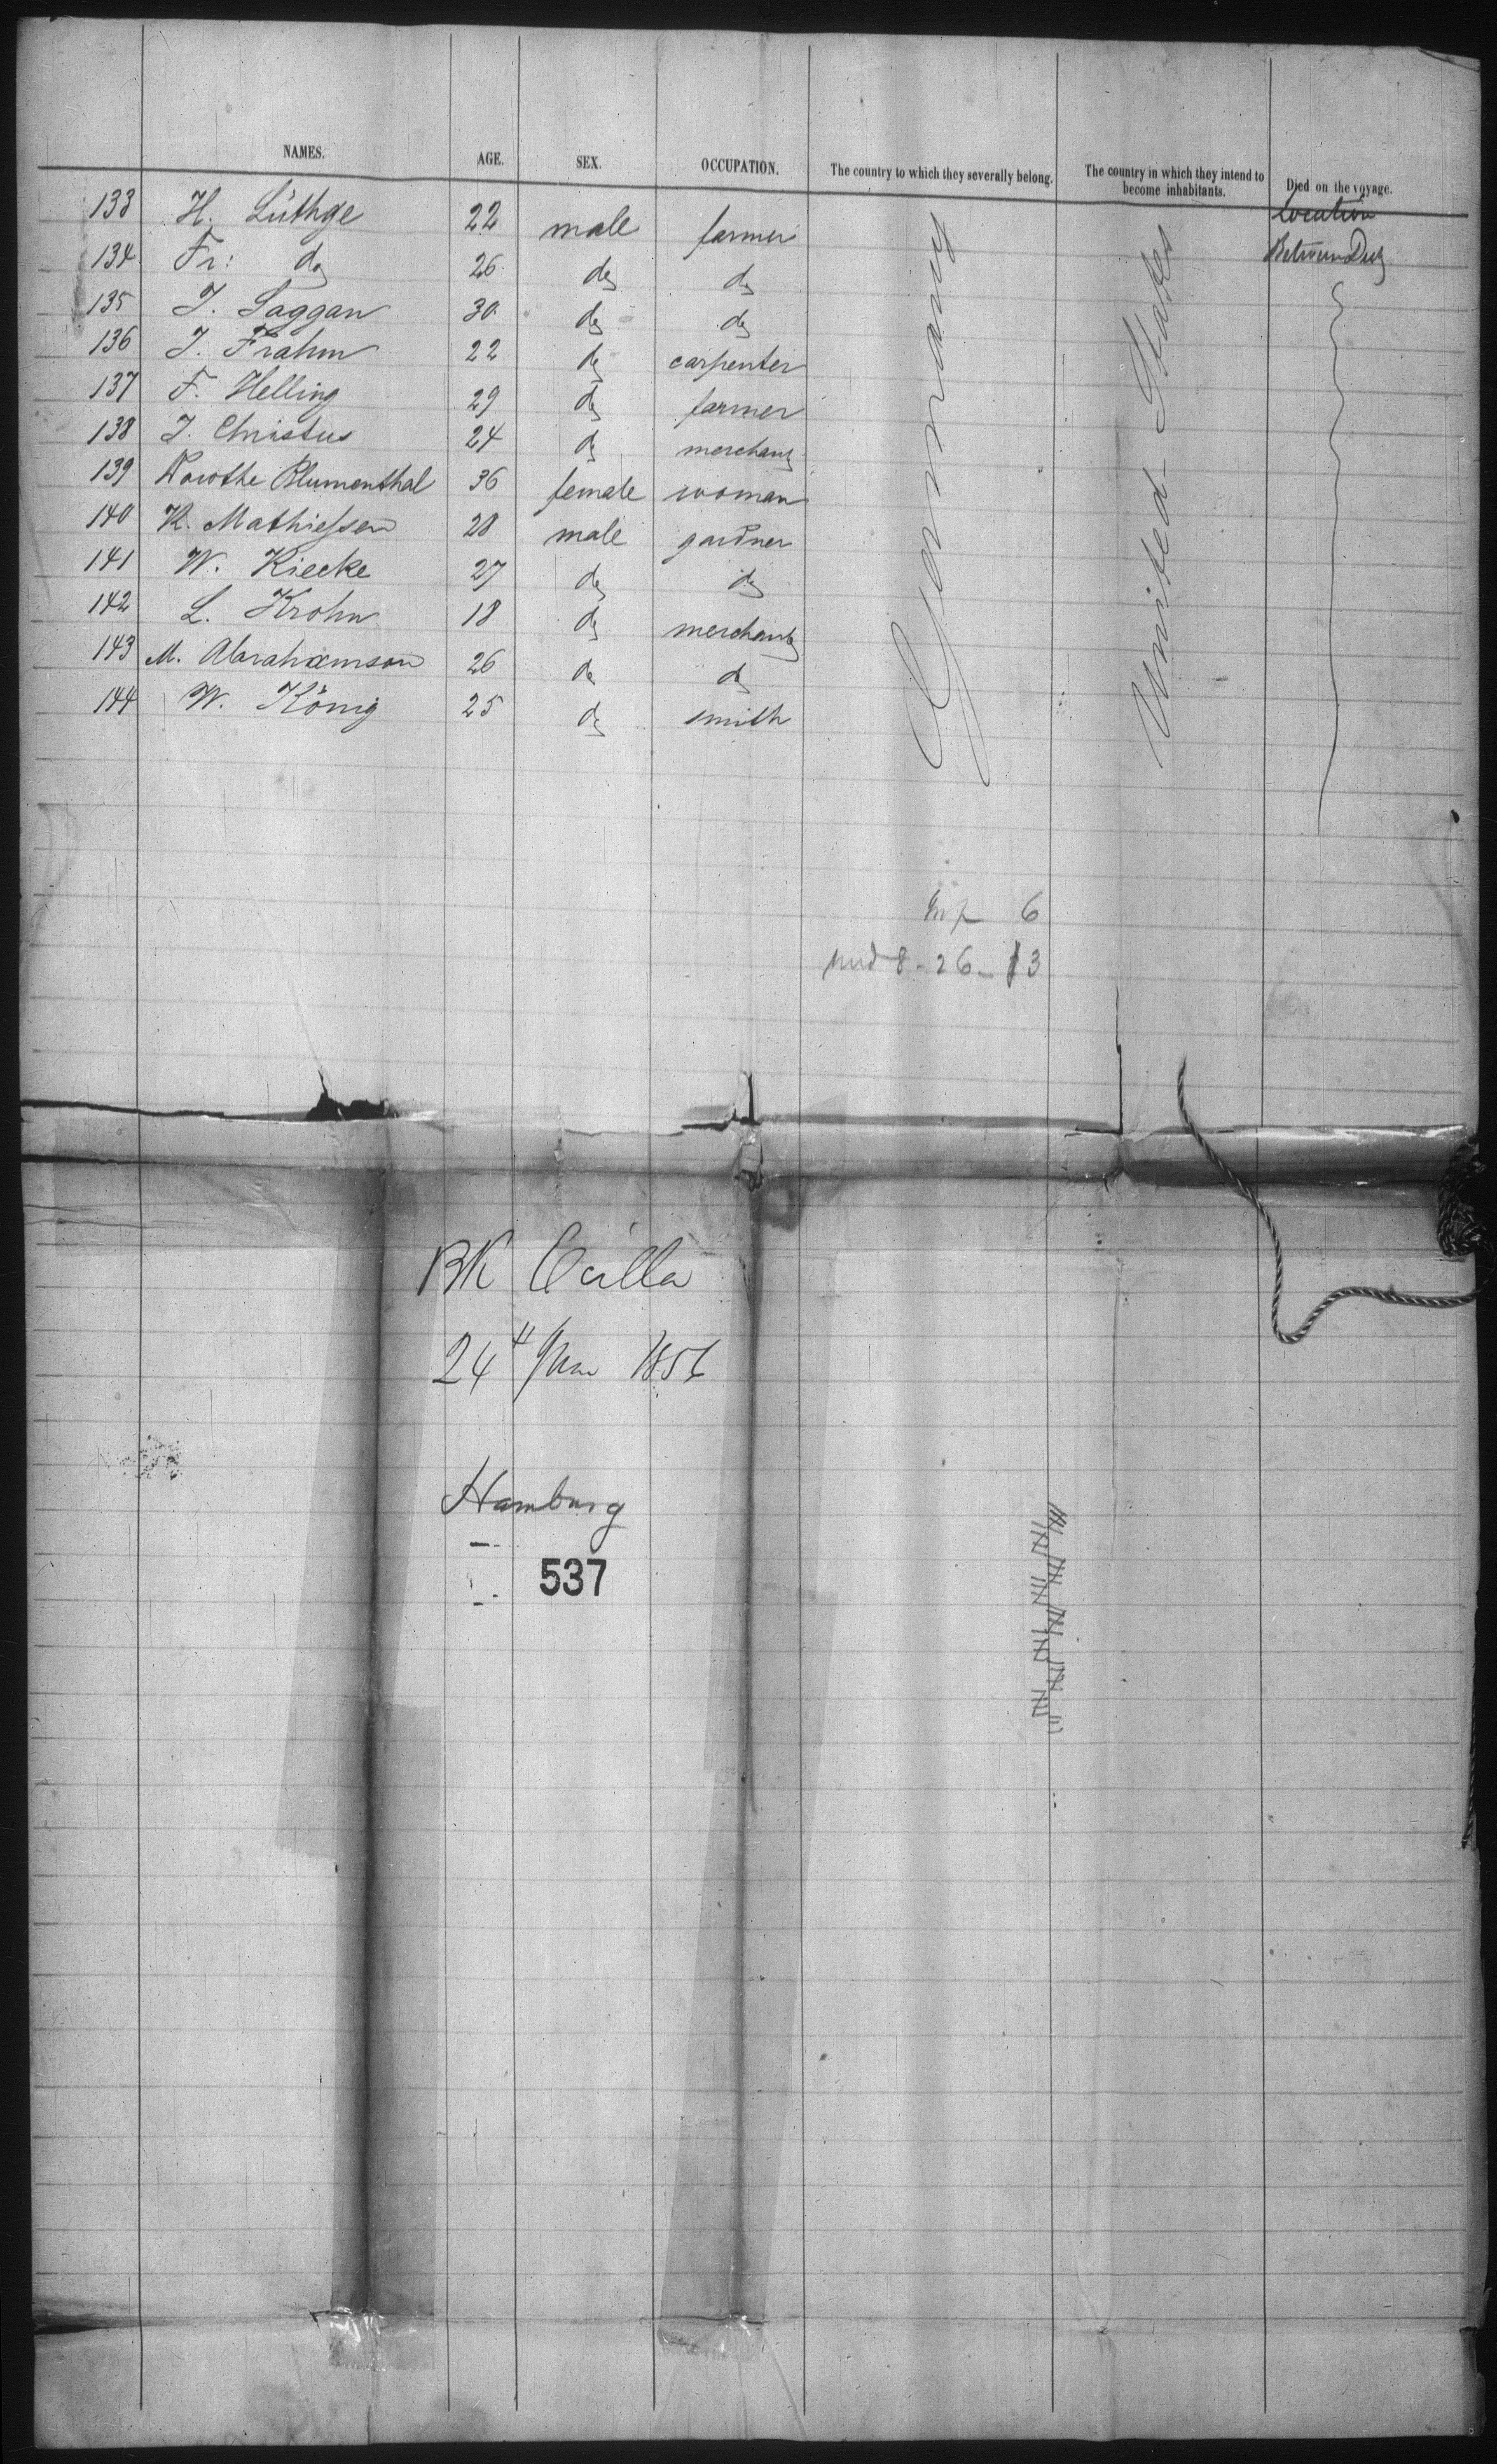 NAMES. AGE. SEX. OCCUPATION. The country to which they severally belong. The country in which they intend to become inhabitants. Died on the voyage.
Location
133 H. Lüthge 22 male farmer
Between Deck
134 Fr: do 26 do do
135 J. Saggau 30 do do
136 J. Frahm 22 do carpenter
137 F. Helling 29 do farmer
138 J. Christus 24 do merchant
139 Dorothe Blumenthal 36 female woman
140 K. Mathiessen 28 male gardner
141 W. Kiecke 27 do do
142 L. Krohn 18 do merchant
143 M. Abrahamson 26 do do
144 W. König 25 do smith
Germany
United States
6
8-26-13
BK
24 1856
Hamburg
537